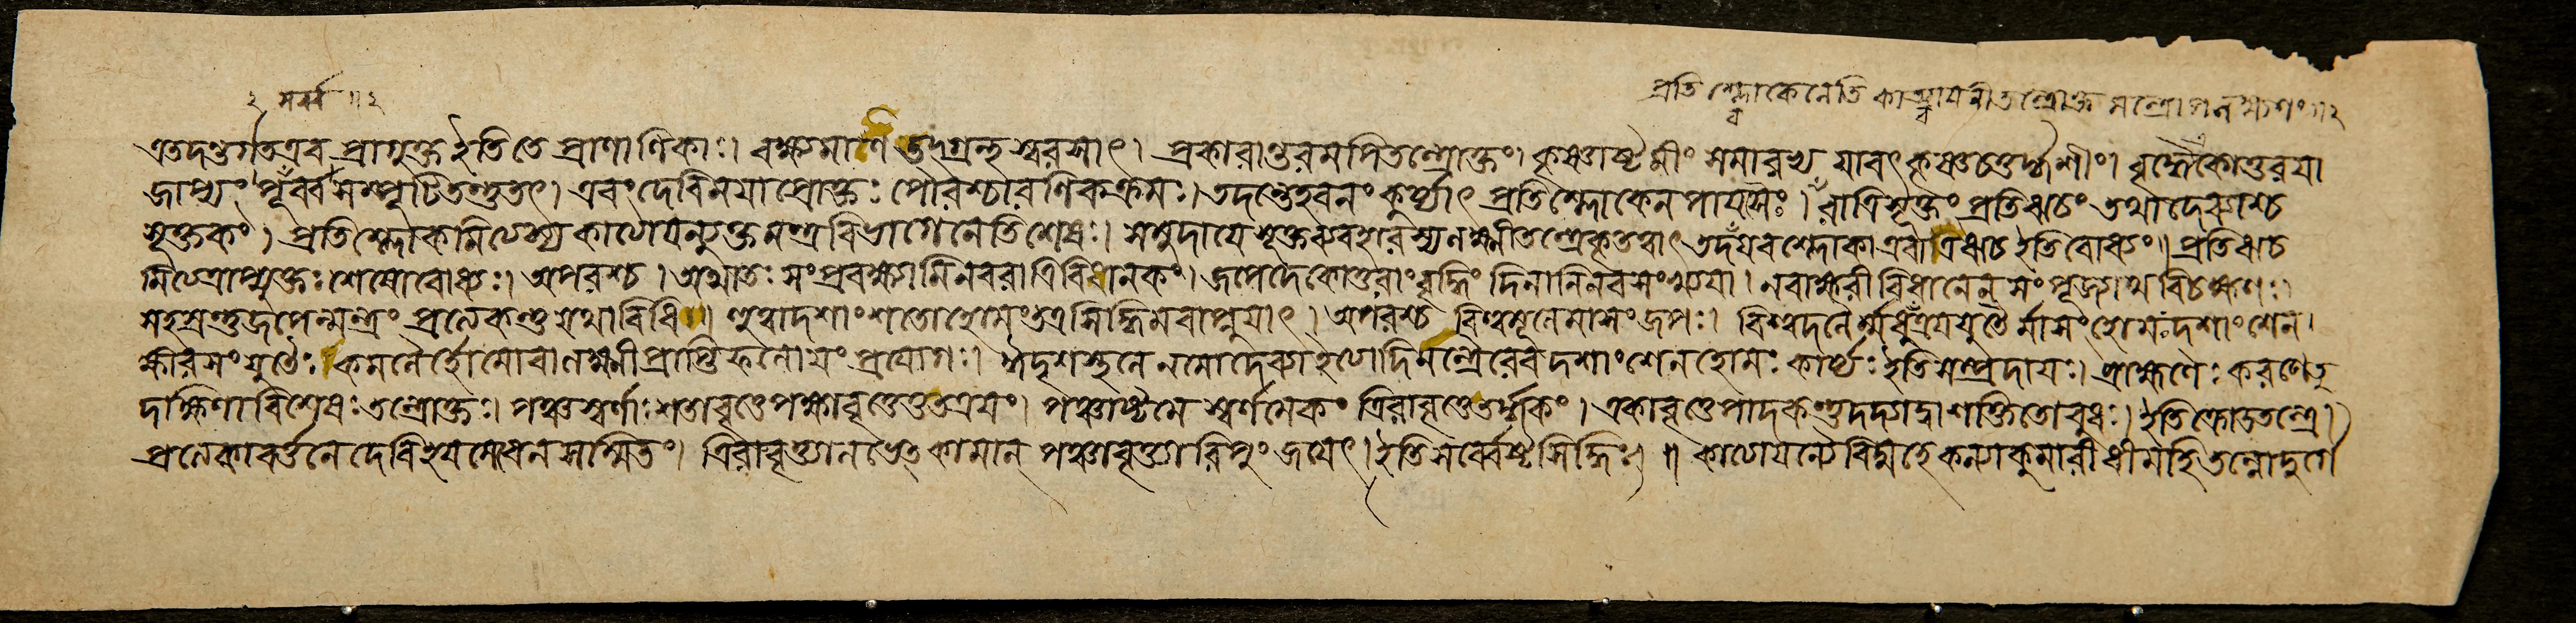 ২ সর্ব্ব ॥ ২
প্রতিশ্লোকেনেতি কাত্যায়নীতন্ত্রোক্তমন্ত্রোপলক্ষণং ॥ ২
এতদন্তর্গতএব প্রাগুক্ত ইতি তে প্রামাণিকাঃ। বক্ষ্যমাণ তদ্গ্রন্থস্বরসাৎ। প্রকারান্তরমপি তন্ত্রোক্তং। কৃষ্ণাষ্টমীং সমারভ্য যাবৎ কৃষ্ণচতুর্দ্দশীং। বৃদ্ধ্যৈকোত্তরয়া
জাপ্যং পূর্ব্ব সম্পুটিতন্তু তৎ। এবং দেবি ময়া প্রোক্তঃ পৌরশ্চারণিকক্রমঃ। তদন্তে হবনং কুর্য্যাৎ প্রতিশ্লোকেন পায়সৈঃ। রাত্রিসূক্তং প্রতিঋচং তথা দেব্যাশ্চ
সূক্তকং। প্রতিশ্লোকমিত্যস্য কাত্যায়ন্যুক্তমন্ত্রবিভাগেনেতি শেষঃ। সমুদায়ে সূক্তব্যবহারস্য লক্ষ্মীতন্ত্রে কৃতত্বাৎ তদীয়শ্লোকা এবাত্র ঋচ ইতি বোধ্যং। প্রতিঋচ
মিত্যত্রাপ্যুক্তঃ শেষো বোধ্যঃ। অপরশ্চ। অথাতঃ সংপ্রবক্ষ্যামি নবরাত্রিবিধানকং। জপেদেকোত্তরাং বৃদ্ধিং দিনানি নবসংখ্যয়া। নবাক্ষরীবিধানেন সংপূজ্যাথ বিচক্ষণঃ।
সহস্রন্তু জপেন্মন্ত্রং প্রত্যেকন্তু যথাবিধি। দশাংশতো হোমং তত্র সিদ্ধিমবাপ্নুয়াৎ। অপরশ্চ বিল্বমূলে মাসং জপঃ। বিল্বদলৈর্ম্মধুত্রয়যুতৈ র্মাসং হোমঃ দশাংশেন।
ক্ষীরসংযুতৈঃ কমলৈর্হোমো বা লক্ষ্মীপ্রাপ্তিফলোয়ং প্রয়োগঃ। ঈদৃশস্থলে নমো দেব্যা ইত্যাদিমন্ত্রৈরেব দশাংশেন হোমঃ কার্য্যঃ ইতি সম্প্রদায়ঃ। করণে তু
দক্ষিণাবিশেষঃ তন্ত্রোক্তঃ। পঞ্চস্বর্ণাঃ শতাবৃত্তে পক্ষাবৃত্তে তু তত্রয়ং। পঞ্চাষ্টমে স্বর্ণমেকং ত্রিরাবৃত্তে তদর্দ্ধকং। একাবৃত্তে পাদকন্তু দদ্যাদ্বা শক্তিতো বুধঃ। ইতি ক্রোডতন্ত্রে।
প্রত্যেকাবর্ত্তনে দেবি হয়মেধেন সম্মিতং। ত্রিরাবৃত্ত্যা লভেৎ কামান্ পঞ্চাবৃত্ত্যা রিপুং জয়েৎ। ইতি সর্ব্বেষ্টসিদ্ধিঃ॥ কাত্যায়ন্যৈ বিদ্মহে কন্যাকুমারী ধীমহি তন্নো দুর্গে